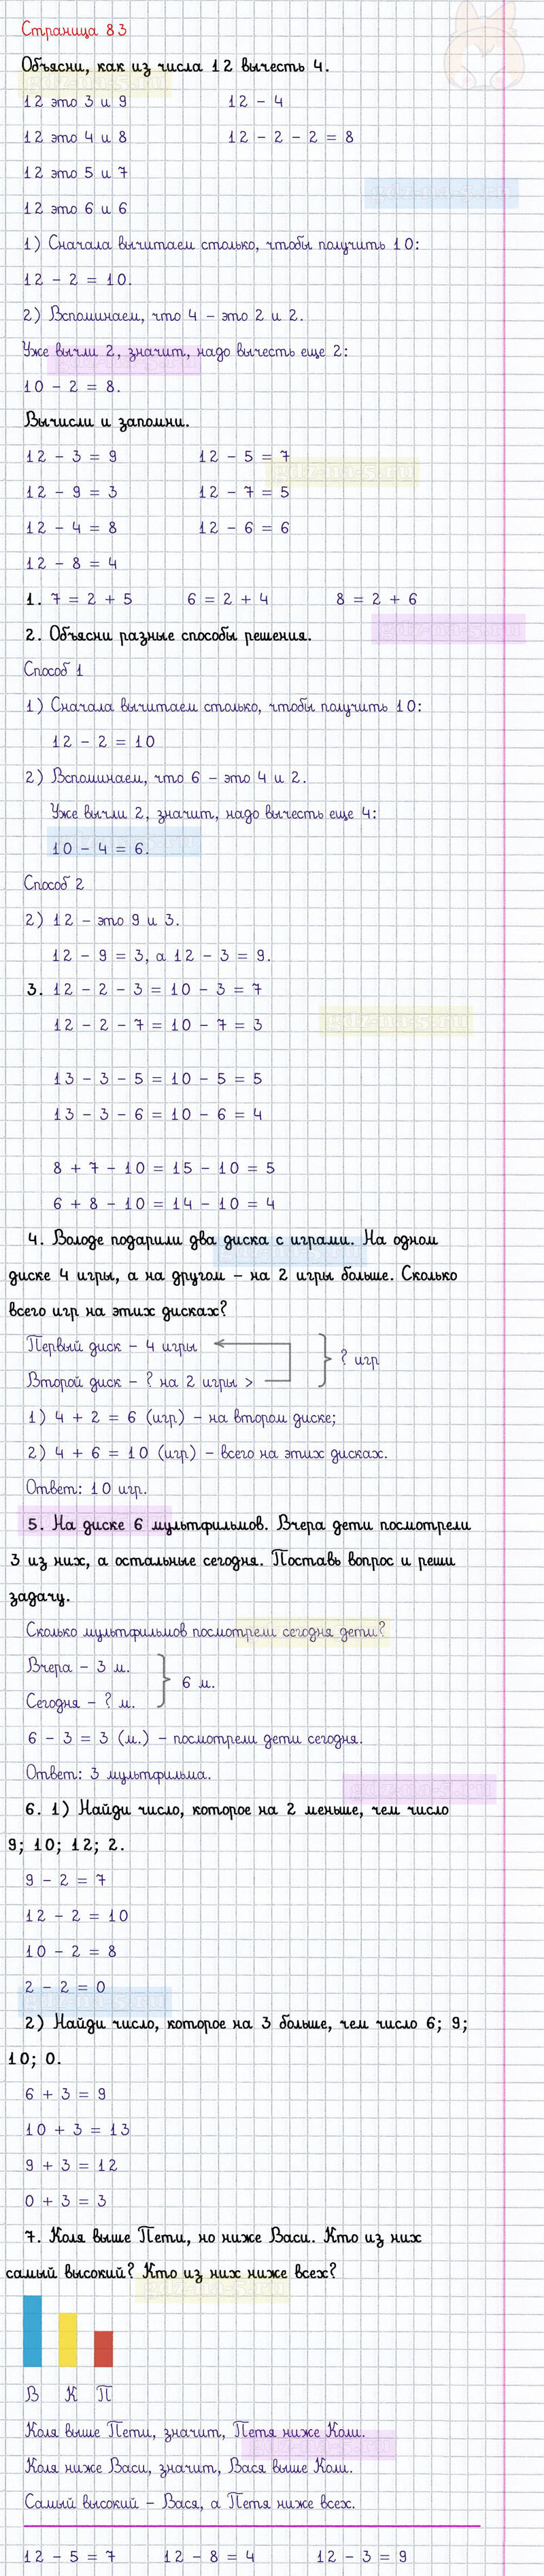 Страница 83
Объясни, как из числа 12 вычесть 4.
12 это 3 и 9 12 - 4
12 это 4 и 8 12 - 2 - 2 = 8
12 это 5 и 7
12 это 6 и 6
1) Сначала вычитаем столько, чтобы получить 10:
12 - 2 = 10.
2) Вспоминаем, что 4 - это 2 и 2.
Уже вычли 2, значит, надо вычесть еще 2:
10 - 2 = 8.
Вычисли и запомни.
12 - 3 = 9 12 - 5 = 7
12 - 9 = 3 12 - 7 = 5
12 - 4 = 8 12 - 6 = 6
12 - 8 = 4
1. 7 = 2 + 5 6 = 2 + 4 8 = 2 + 6
2. Объясни разные способы решения.
Способ 1
1) Сначала вычитаем столько, чтобы получить 10:
12 - 2 = 10
2) Вспоминаем, что 6 - это 4 и 2.
Уже вычли 2, значит, надо вычесть еще 4:
10 - 4 = 6.
Способ 2
2) 12 - это 9 и 3.
12 - 9 = 3, а 12 - 3 = 9.
3. 12 - 2 - 3 = 10 - 3 = 7
12 - 2 - 7 = 10 - 7 = 3
13 - 3 - 5 = 10 - 5 = 5
13 - 3 - 6 = 10 - 6 = 4
8 + 7 - 10 = 15 - 10 = 5
6 + 8 - 10 = 14 - 10 = 4
4. Володе подарили два диска с играми. На одном
диске 4 игры, а на другом - на 2 игры больше. Сколько
всего игр на этих дисках?
Первый диск - 4 игры
? игр
Второй диск - ? на 2 игры >
1) 4 + 2 = 6 (игр) - на втором диске;
2) 4 + 6 = 10 (игр) - всего на этих дисках.
Ответ: 10 игр.
5. На диске 6 мультфильмов. Вчера дети посмотрели
3 из них, а остальные сегодня. Поставь вопрос и реши
задачу.
Сколько мультфильмов посмотрели сегодня дети?
Вчера - 3 м.
6 м.
Сегодня - ? м.
6 - 3 = 3 (м.) - посмотрели дети сегодня.
Ответ: 3 мультфильма.
6. 1) Найди число, которое на 2 меньше, чем число
9; 10; 12; 2.
9 - 2 = 7
12 - 2 = 10
10 - 2 = 8
2 - 2 = 0
2) Найди число, которое на 3 больше, чем число 6; 9;
10; 0.
6 + 3 = 9
10 + 3 = 13
9 + 3 = 12
0 + 3 = 3
7. Коля выше Пети, но ниже Васи. Кто из них
самый высокий? Кто из них ниже всех?
В К П
Коля выше Пети, значит, Петя ниже Коли.
Коля ниже Васи, значит, Вася выше Коли.
Самый высокий - Вася, а Петя ниже всех.
12 - 5 = 7 12 - 8 = 4 12 - 3 = 9